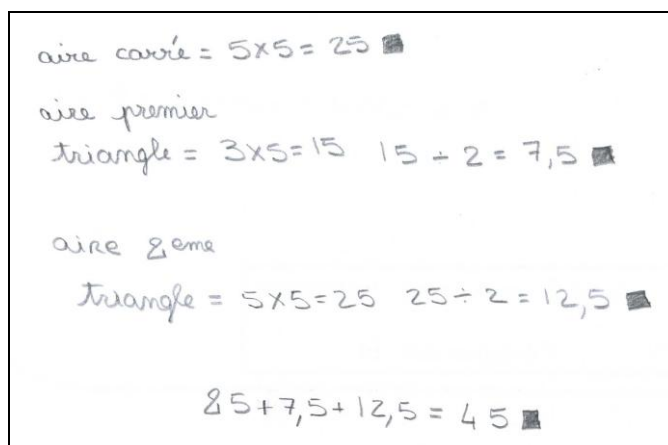 aire carré = 5×5 = 25 ■
aire premier
triangle = 3×5=15 15 ÷ 2 = 7,5 ■
aire 2eme
triangle = 5×5=25 25 ÷ 2 = 12,5 ■
25+7,5+12,5 = 45 ■